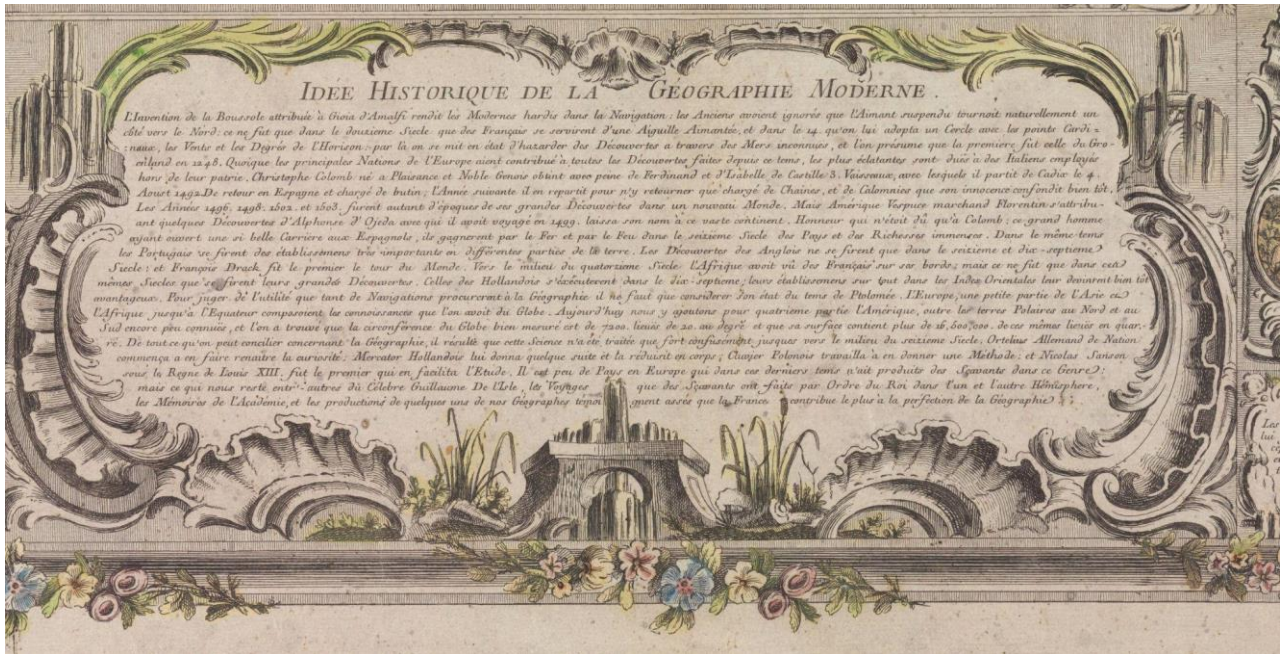 IDÉE HISTORIQUE DE LA GÉOGRAPHIE MODERNE.
L'Invention de la Boussole attribuée à Gioia d'Amalfi rendit les Modernes hardis dans la Navigation: les Anciens avoient ignorés que l'Aimant suspendu tournoit naturellement un
côté vers le Nord: ce ne fut que dans le douzieme Siecle que des Français se servirent d'une Aiguille Aimantée, et dans le 14. qu'on lui adopta un Cercle avec les points Cardi =
:naux, les Vents et les Degrés de l'Horison: par là on se mit en état d'hazarder des Découvertes a travers des Mers inconnues, et l'on présume que la premiere fut celle du Gro-
enland en 1248. Quoique les principales Nations de l'Europe aient contribué a toutes les Découvertes faites depuis ce tems, les plus éclatantes sont dues à des Italiens employés
hors de leur patrie. Christophe Colomb né a Plaisance et Noble Genois obtint avec peine de Ferdinand et d'Isabelle de Castille 3. Vaisseaux, avec lesquels il partit de Cadix le 4.
Aoust 1492. De retour en Espagne et chargé de butin; l'Année suivante il en repartit pour n'y retourner que chargé de Chaines, et de Calomnies que son innocence confondit bien tôt.
Les Années 1496, 1498, 1502, et 1503, furent autant d'époques de ses grandes Découvertes dans un nouveau Monde. Mais Amérique Vespuce marchand Florentin s'attribu-
ant quelques Découvertes d'Alphonse d'Ojeda avec qui il avoit voyagé en 1499, laissa son nom à ce vaste continent. Honneur qui n'étoit dû qu'a Colomb; ce grand homme
ayant ouvert une si belle Carriere aux Espagnols, ils gagnerent par le Fer et par le Feu dans le seizieme Siecle des Pays et des Richesses immenses. Dans le même tems
les Portugais se firent des établissemens très importants en différentes parties de la terre. Les Découvertes des Anglois ne se firent que dans le seizieme et dix-septieme
Siecle: et François Drack fit le premier le tour du Monde. Vers le milieu du quatorzieme Siecle l'Afrique avoit vû des Français sur ses bords; mais ce ne fut que dans ces
mêmes Siecles que se firent leurs grandes Découvertes. Celles des Hollandois s'exécuterent dans le dix-septieme; leurs établissemens sur tout dans les Indes Orientales leur devinrent bien tôt
avantageux. Pour juger de l'utilité que tant de Navigations procurerent à la Géographie il ne faut que considerer son état du tems de Ptolomée. L'Europe, une petite partie de l'Asie et
l'Afrique jusqu'a l'Equateur composoient les connoissances que l'on avoit du Globe. Aujourd'huy nous y ajoutons pour quatrieme partie l'Amérique, outre les terres Polaires au Nord et au
Sud encore peu connues, et l'on a trouvé que la circonférence du Globe bien mesuré est de 7200. lieues de 20. au degré et que sa surface contient plus de 16,500,000. de ces mêmes lieues en quar.
ré. De tout ce qu'on peut concilier concernant la Géographie, il résulte que cette Science n'a été traitée que fort confusément jusques vers le milieu du seizieme Siecle. Ortelius Allemand de Nation
commença a en faire renaître la curiosité: Mercator Hollandois lui donna quelque suite et la réduisit en corps; Cluvier Polonois travailla a en donner une Méthode: et Nicolas Sanson
sous le Regne de Louis XIII, fut le premier qui en facilita l'Etude. Il est peu de Pays en Europe qui dans ces derniers tems n'ait produits des Sçavants dans ce Genre:
mais ce qui nous reste entr' autres du Célebre Guillaume De l'Isle, les Voyages que des Sçavants ont faits par Ordre du Roi dans l'un et l'autre Hémisphere,
les Mémoires de l'Académie, et les productions de quelques uns de nos Géographes témoignent assés que la France contribue le plus a la perfection de la Géographie.
Les
lui